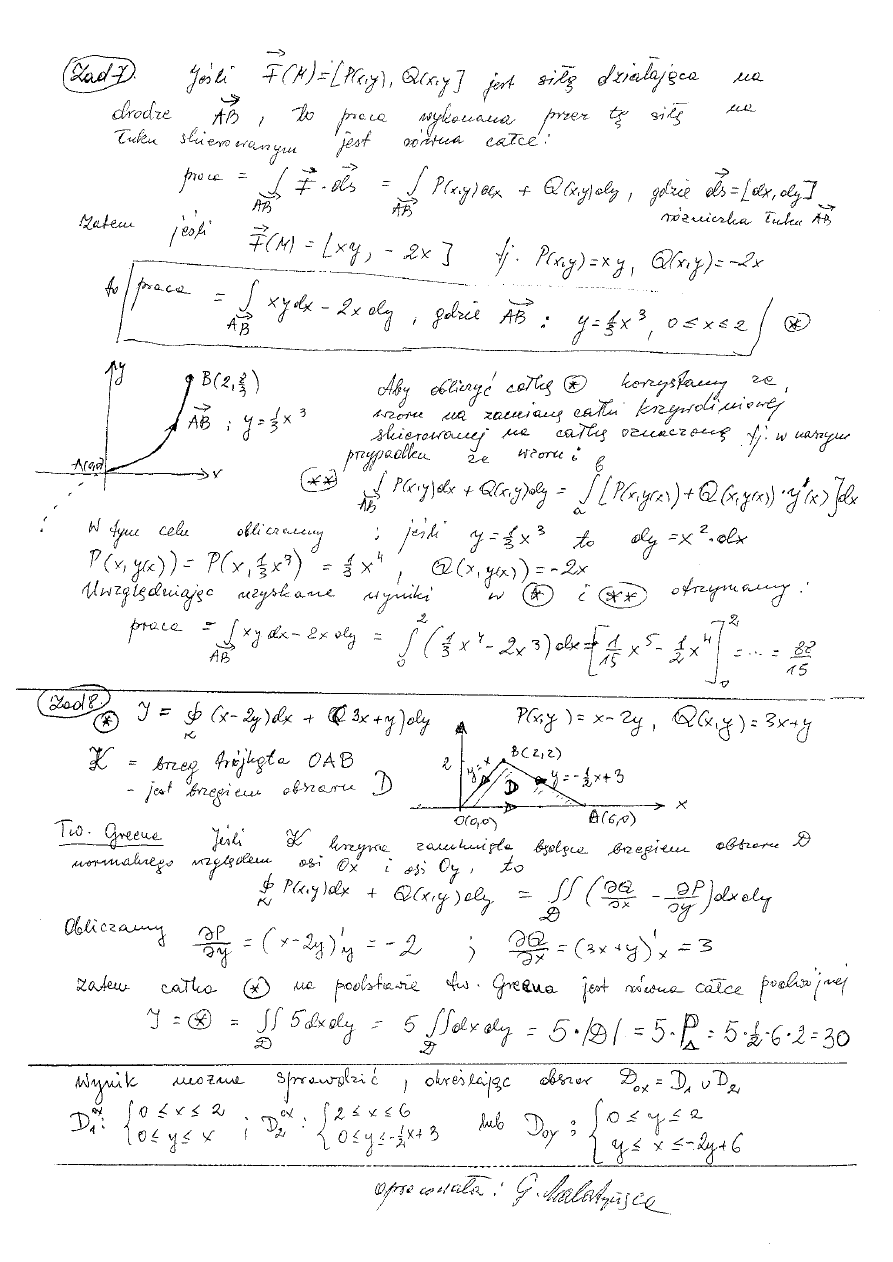 Zad 7. Jeśli F(M)=[P(x,y), Q(x,y] jest siłą działającą na
drodze AB, to praca wykonana przez tę siłę na
łuku skierowanym jest równa całce:
praca = ∫ F · ds = ∫ P(x,y)dx + Q(x,y)dy, gdzie ds=[dx,dy]
AB AB różniczka łuku AB
Zatem jeśli F(M) = [xy, -2x] tj. P(x,y)=xy, Q(x,y)=-2x
to praca = ∫ xydx - 2x dy, gdzie AB : y=1/3 x³, 0≤x≤2 (*)
AB
y
B(2,2/3)
AB ; y=1/3 x³
A(0,0)
x
Aby obliczyć całkę (*) korzystamy ze
wzoru na zamianę całki krzywoliniowej
skierowanej na całkę oznaczoną tj. w naszym
przypadku ze wzoru:
(**) ∫ P(x,y)dx + Q(x,y)dy = ∫ₐᵇ [P(x,y(x)) + Q(x,y(x))·y'(x)]dx
AB
W tym celu obliczamy : jeśli y=1/3 x³ to dy=x²·dx
P(x,y(x)) = P(x,1/3 x³) = 1/3 x⁴, Q(x,y(x))=-2x
Uwzględniając uzyskane wyniki w (*) i (**) otrzymamy:
praca = ∫ xy dx - 2x dy = ∫₀² (1/3 x⁴ - 2x³)dx = [1/15 x⁵ - 1/2 x⁴]₀² = ... = 82/15
AB
Zad 8. (*) J = ∮ (x-2y)dx + (3x+y)dy P(x,y) = x-2y, Q(x,y)=3x+y
K
K = brzeg trójkąta OAB
- jest brzegiem obszaru D
2
y=x
B(2,2)
y=-1/2x+3
D
O(0,0)
A(6,0)
x
Tw. Greena Jeśli K krzywa zamknięta będąca brzegiem obszaru D
normalnego względem osi Ox i osi Oy, to
∮ P(x,y)dx + Q(x,y)dy = ∬ (∂Q/∂x - ∂P/∂y)dxdy
K D
Obliczamy ∂P/∂y = (x-2y)'y = -2 ; ∂Q/∂x = (3x+y)'x = 3
Zatem całka (*) na podstawie tw. Greena jest równa całce podwójnej
J = (*) = ∬ 5dxdy = 5 ∬dxdy = 5·|D| = 5·P△ = 5·1/2·6·2=30
D D
Wynik można sprawdzić, określając obszar Dox = D₁ ∪ D₂
D₁ox: { 0≤x≤2 ; D₂ox: { 2≤x≤6 lub Doy : { 0≤y≤2
0≤y≤x 0≤y≤-1/2x+3 y≤x≤-2y+6
opracowała: G.